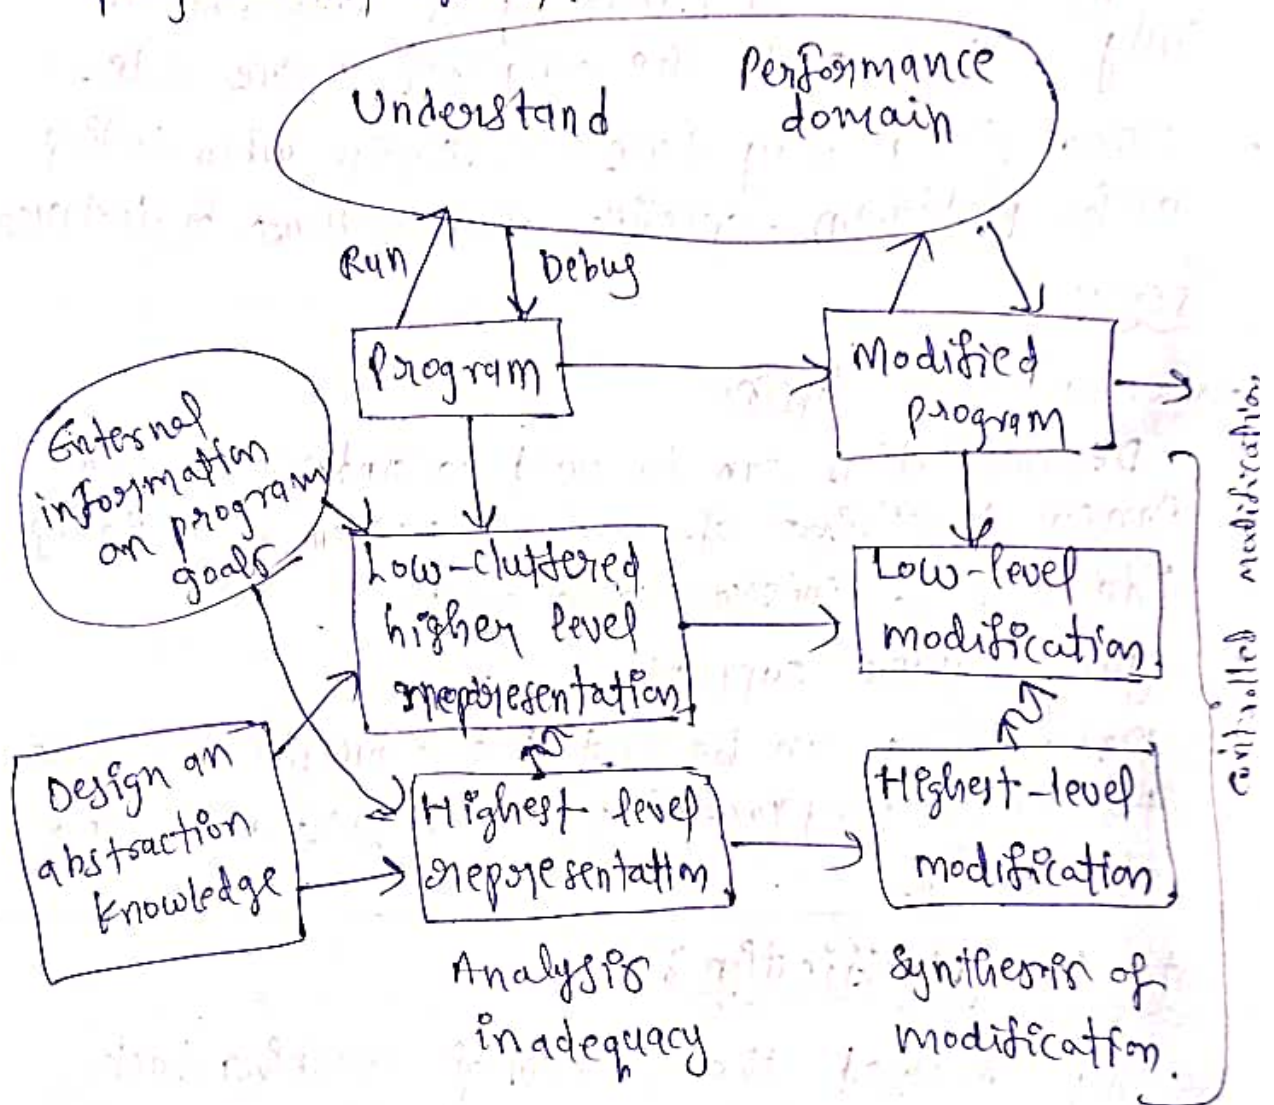 Understand
Performance
domain
Run
Debug
Program
Modified
program
External
information
on program
goals
Low-cluttered
higher level
representation
Low-level
modification
Design an
abstraction
knowledge
Highest-level
representation
Highest-level
modification
Analysis
inadequacy
Synthesis of
modification.
controlled modification